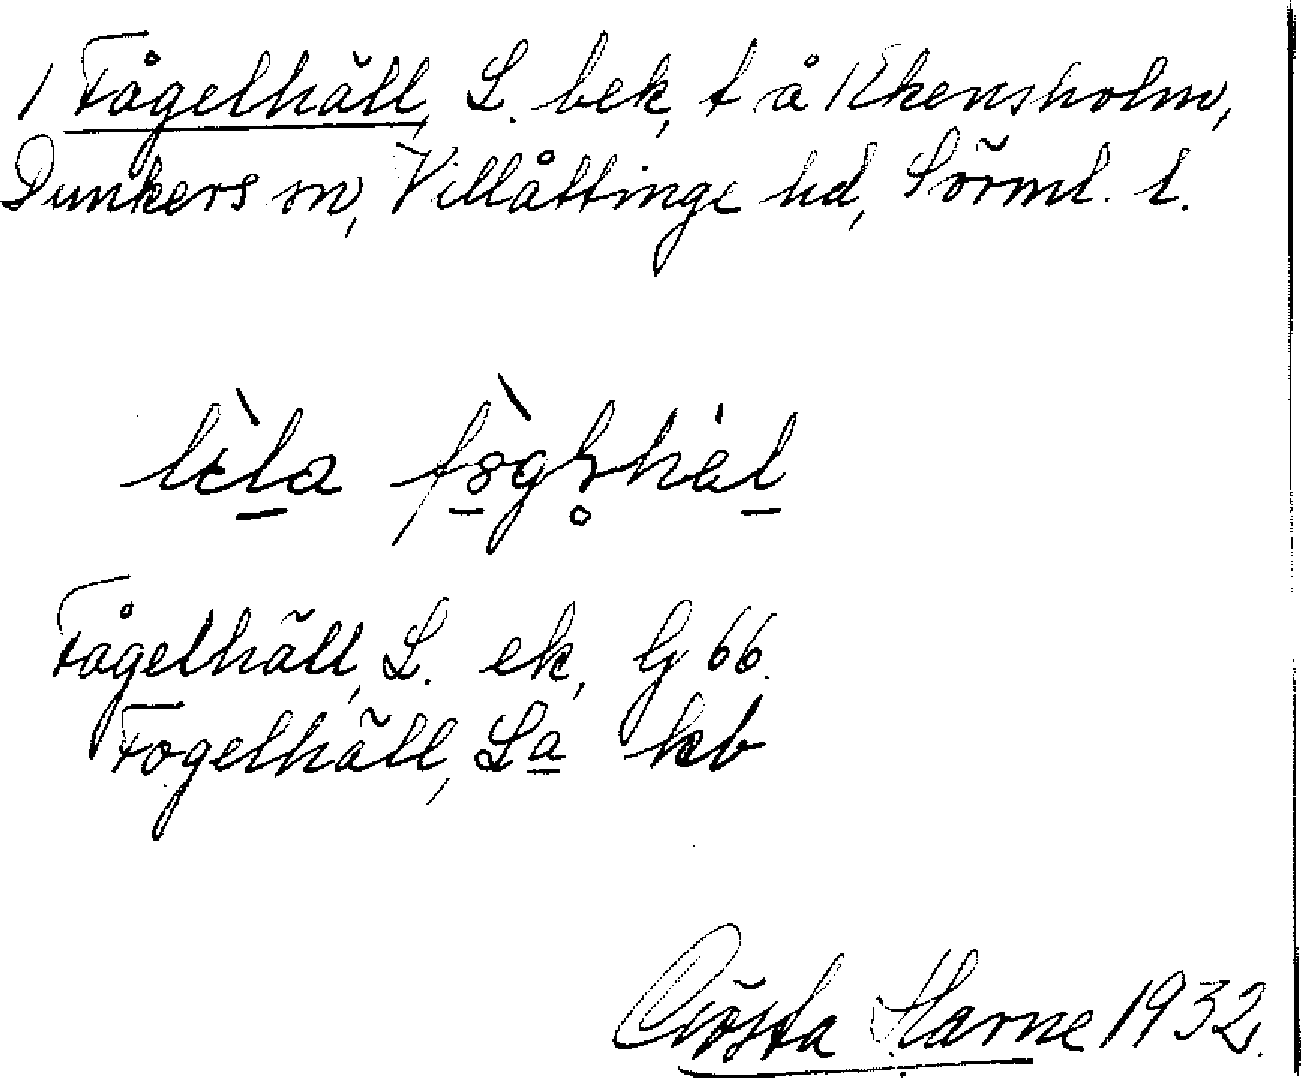 1 Fågelhäll, L. bek, t å 1 Ekensholm,
Dunkers sn, Villåttinge hd, Sörml. l.
Fågelhäll, L. ek, G 66.
Fogelhäll, La kb
Gösta Harne 1932.